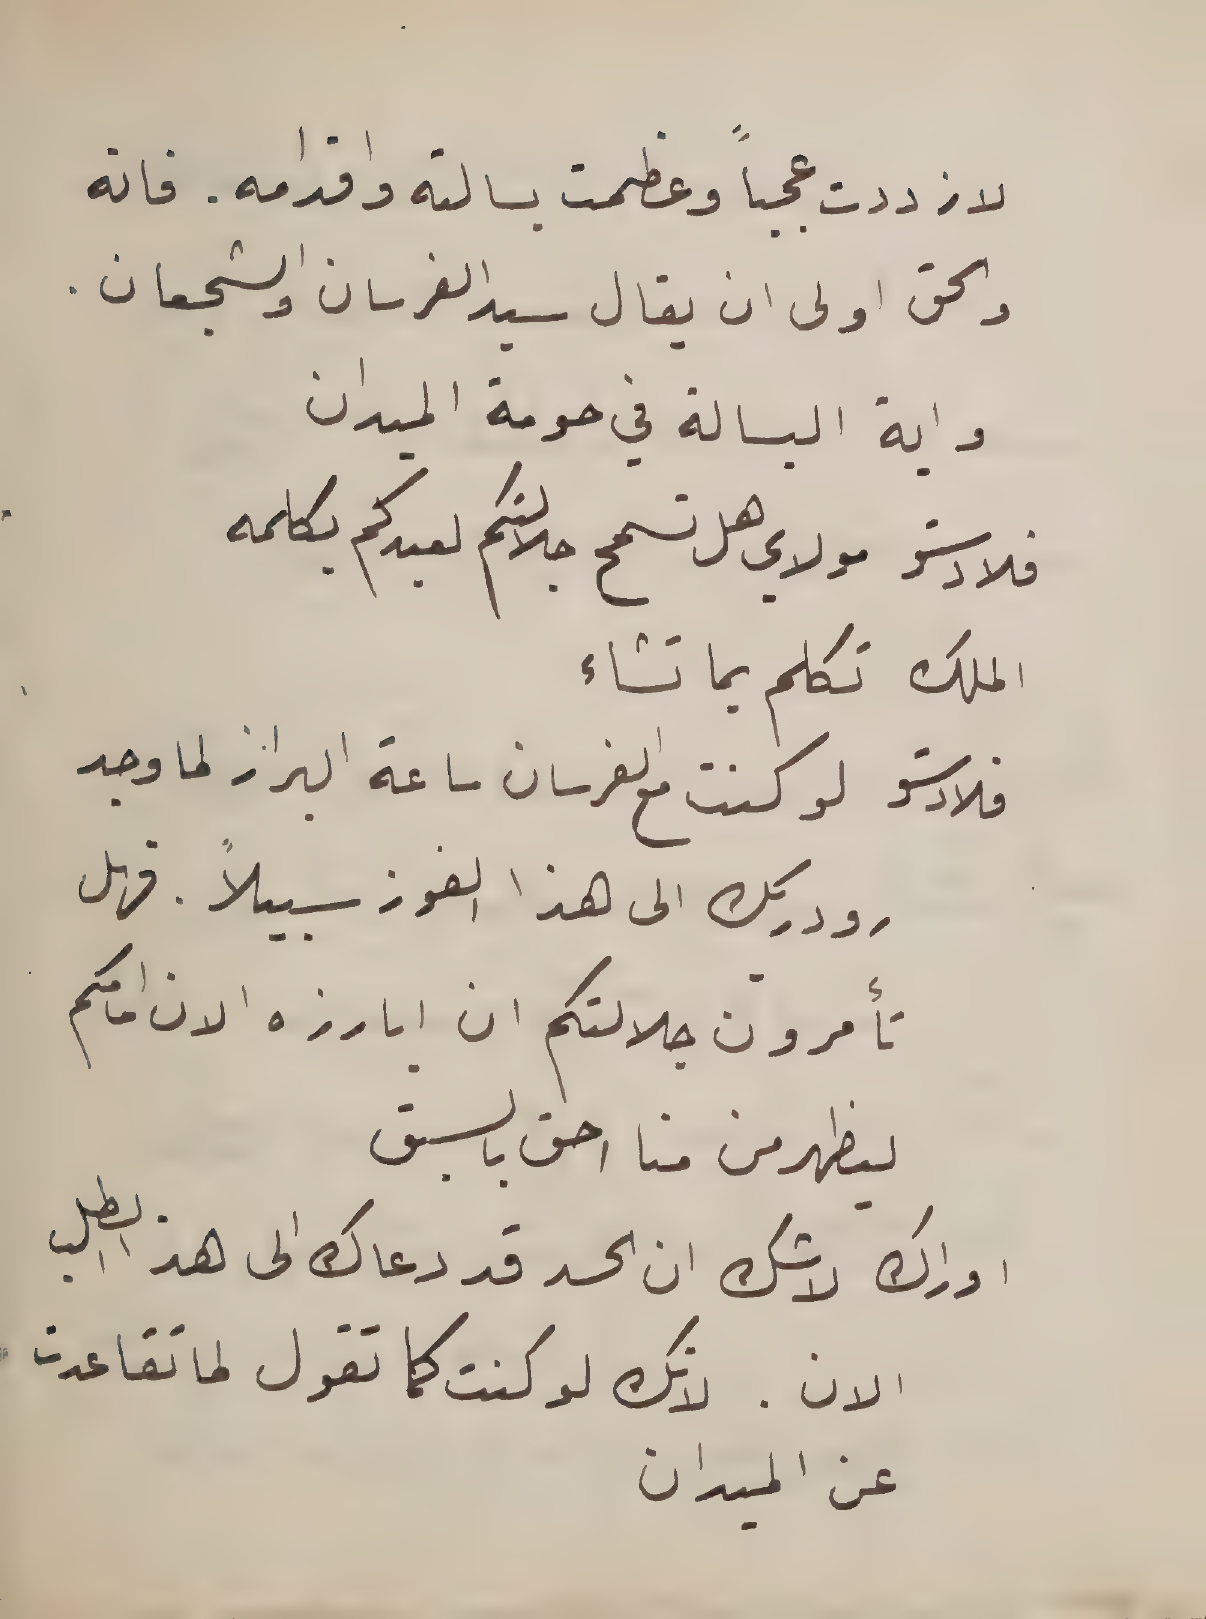 لازددت عجباً وعظمت بسالته واقدامه . فانه
والحق اولى ان يقال سيد الفرسان والشجعان .
واية البسالة في حومة الميدان
فلادستو مولاي هل تسمح جلالتكم لعبدكم بكلمه
الملك تكلم بما تشاء
فلادستو لو كنت مع الفرسان ساعة البراز لما وجد
رودريك الى هذا الفوز سبيلاً . فهل
تأمرون جلالتكم ان ابارزه الان امامكم
ليظهر من منا احق بالسبق
اوراك لاشك ان الحسد قد دعاك الى هذا الطلب
الان . لانك لو كنت كما تقول لما تقاعدت
عن الميدان